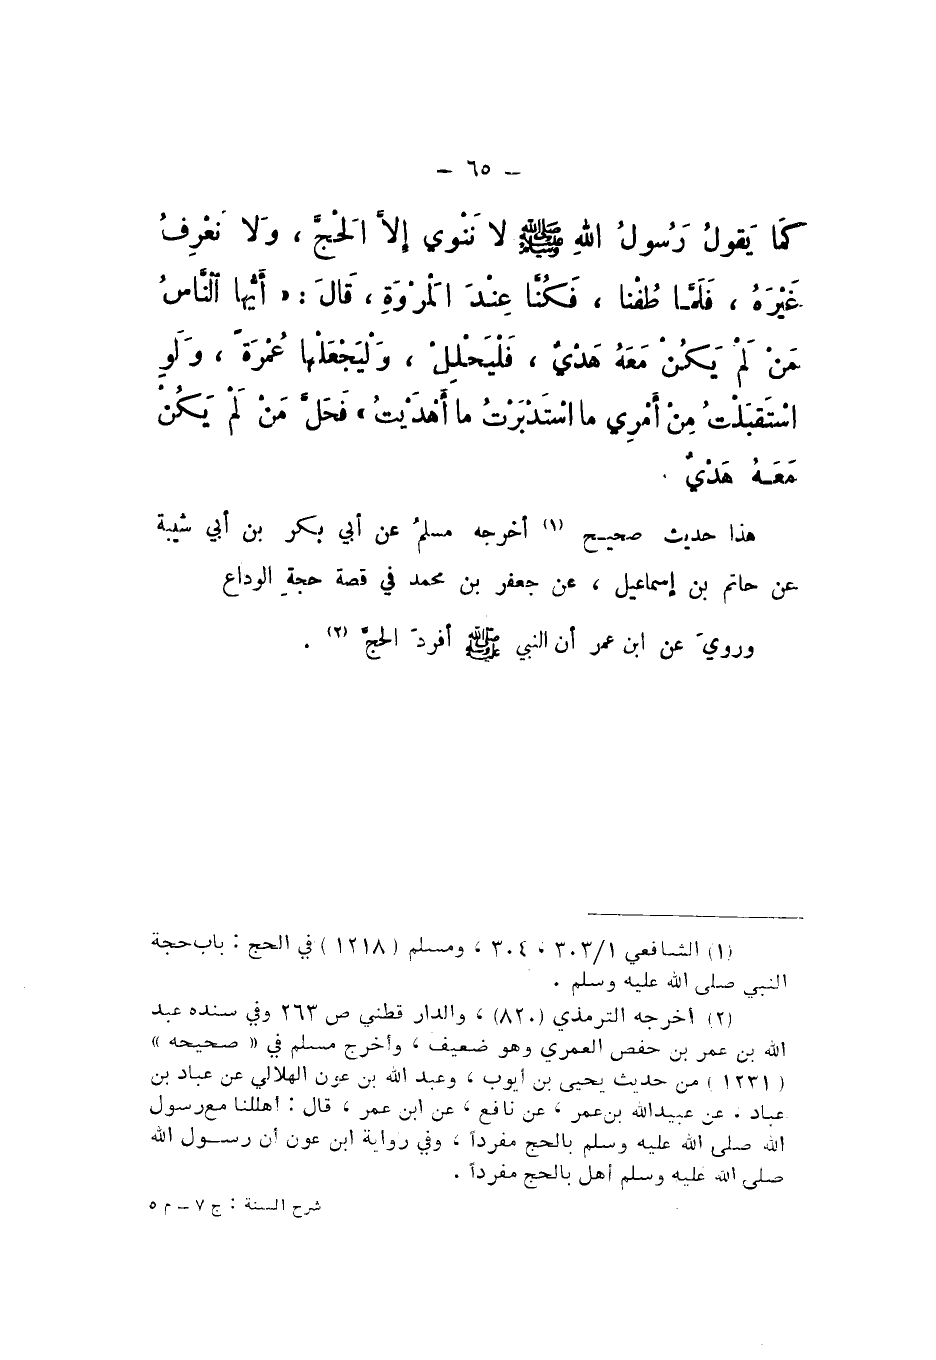 – ٦٥ –
كَمَا يَقولُ رَسُولُ اللهِ ﷺ لا نَنْوي إلاَّ الَحْجَّ ، وَلا نَعْرِفُ
غَيْرَهُ ، فَلَمَّـا طُفْنا ، فَـكُنَّا عِنْـدَ الَمْرْوَةِ ، قَالَ : « أَيُّها النَّاسُ
مَنْ لَمْ يَـكُنْ مَعَهُ هَدْيٌ ، فَلْيَحْلِلْ ، وَلْيَجْعَلْها عُمْرَةً ، وَلَوِ
اسْتَقبَلْتُ مِنْ أَمْرِي ما اسْتَدْبَرْتُ ما أَهْدَيْتُ » فَحَلَّ مَنْ لَمْ يَـكُنْ
مَعَـهُ هَدْيٌ .
هذا حديث صحيـح (١) أخرجه مسلمٌ عن أبي بـكر بن أبي شيبة
عن حاتم بن إسماعيل ، عن جعفر بن محمد في قصة حجةِ الوداع
ورويَ عن ابن عمر أن النبي ﷺ أفردَ الحجَّ (٢) .
(١) الشافعي ٣٠٣/١ ، ٣٠٤ ، ومسلم ( ١٢١٨ ) في الحج : باب حجة
النبي صلى الله عليه وسلم .
(٢) أخرجه الترمذي (٨٢٠) ، والدار قطني ص ٢٦٣ وفي سنده عبد
الله بن عمر بن حفص العمري وهو ضعيف ، وأخرج مسلم في « صحيحه »
( ١٢٣١ ) من حديث يحيى بن أيوب ، وعبد الله بن عون الهلالي عن عباد بن
عباد ، عن عبيدالله بن عمر ، عن نافع ، عن ابن عمر ، قال : أهللنا مع رسول
الله صلى الله عليه وسلم بالحج مفرداً ، وفي رواية ابن عون أن رسـول الله
صلى الله عليه وسلم أهل بالحج مفرداً .
شرح السنة : ج ٧ – م ٥